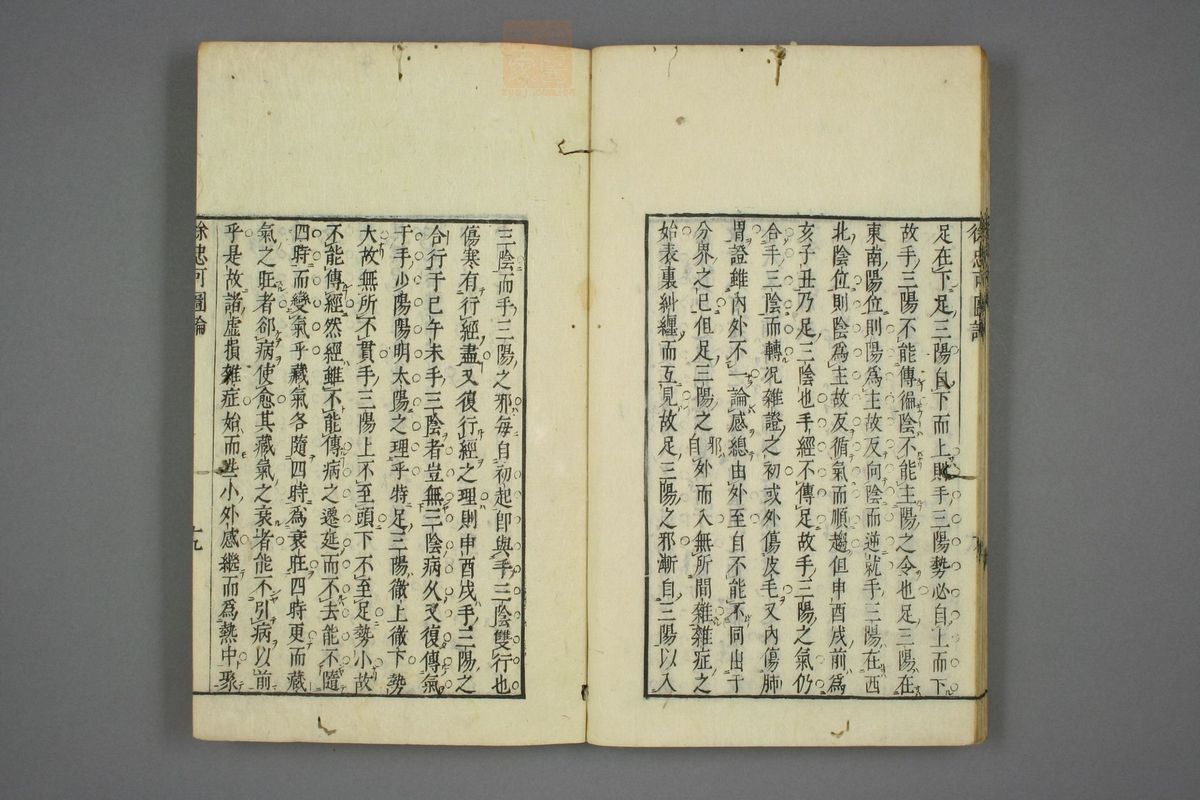 徐忠可圖論
足在下足三陽自下而上則手三陽勢必自上而下
故手三陽不能傳徧陰不能主陽之令也足三陽在
東南陽位則陽爲主故反向陰而逆就手三陽在西
北陰位則陰爲主故反循氣而順趨但申酉戌前爲
亥子丑乃足三陰也手經不傳足故手三陽之氣仍
合手三陰而轉况雜證之初或外傷皮毛又內傷肺
胃證雖內外不一論感總由外至自不能不同出于
分界之巳但足三陽之邪自外而入無所間雜雜症之
始表裏糾纏而互見故足三陽之邪漸自三陽以入
三陰而手三陽之邪每自初起卽與手三陰雙行也
傷寒有行經盡又復行經之理則申酉戌手三陽之
合行于巳午未手三陰者豈無三陰病久又復傳氣
于手少陽陽明太陽之理乎特足三陽徹上徹下勢
大故無所不貫手三陽上不至頭下不至足勢小故
不能傳經然經雖不能傳病之遷延而不去能不隨
四時而變氣乎藏氣各隨四時爲衰旺四時更而藏
氣之旺者卻病使愈其藏氣之衰者能不引病以前
乎是故諸虛損雜症始而些小外感繼而爲熱中聚
徐忠可圖論
十九